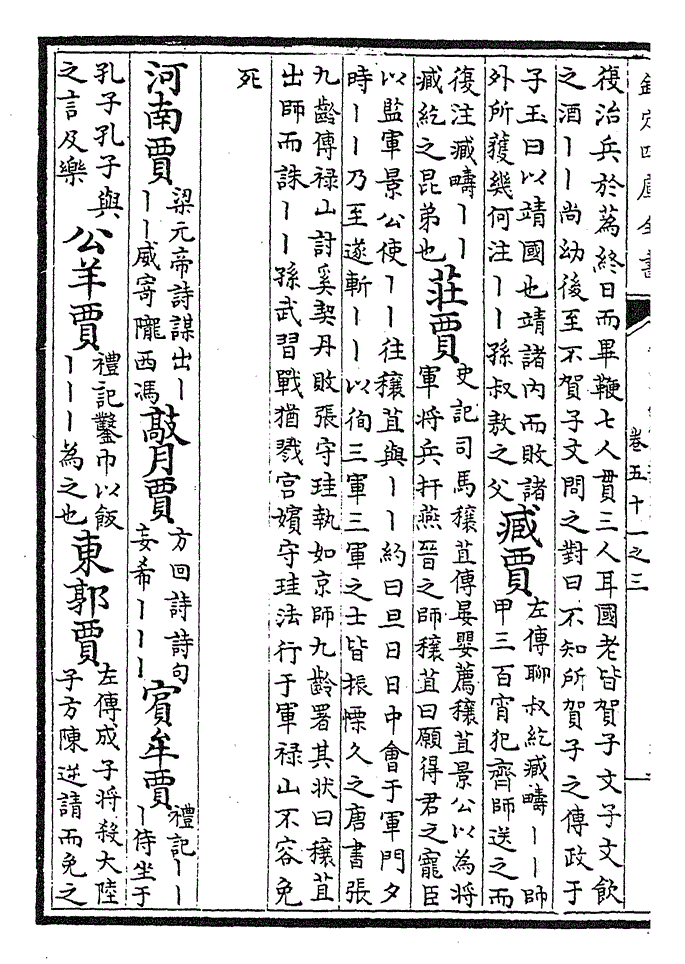 欽定四庫全書
卷五十一之三
復治兵於蔿終日而畢鞭七人貫三人耳國老皆賀子文子文飲
之酒丨丨尚幼後至不賀子文問之對曰不知所賀子之傳政于
子玉曰以靖國也靖諸內而敗諸
外所獲幾何注丨丨孫叔敖之父
臧賈
左傳聊叔紇臧疇丨丨師
甲三百宵犯齊師送之而
復注臧疇丨丨
臧紇之昆弟也
莊賈
史記司馬穰苴傳晏嬰薦穰苴景公以為將
軍將兵扞燕晉之師穰苴曰願得君之寵臣
以監軍景公使丨丨往穰苴與丨丨約曰旦日日中會于軍門夕
時丨丨乃至遂斬丨丨以徇三軍三軍之士皆振慄久之唐書張
九齡傳禄山討奚契丹敗張守珪執如京師九齡署其狀曰穰苴
出師而誅丨丨孫武習戰猶戮宮嬪守珪法行于軍禄山不容免
死
河南賈
梁元帝詩謀出丨
丨丨威寄隴西馮
敲月賈
方回詩詩句
妄希丨丨丨
賓牟賈
禮記丨丨
丨侍坐于
孔子孔子與
之言及樂
公羊賈
禮記鑿巾以飯
丨丨丨為之也
東郭賈
左傳成子將殺大陸
子方陳逆請而免之